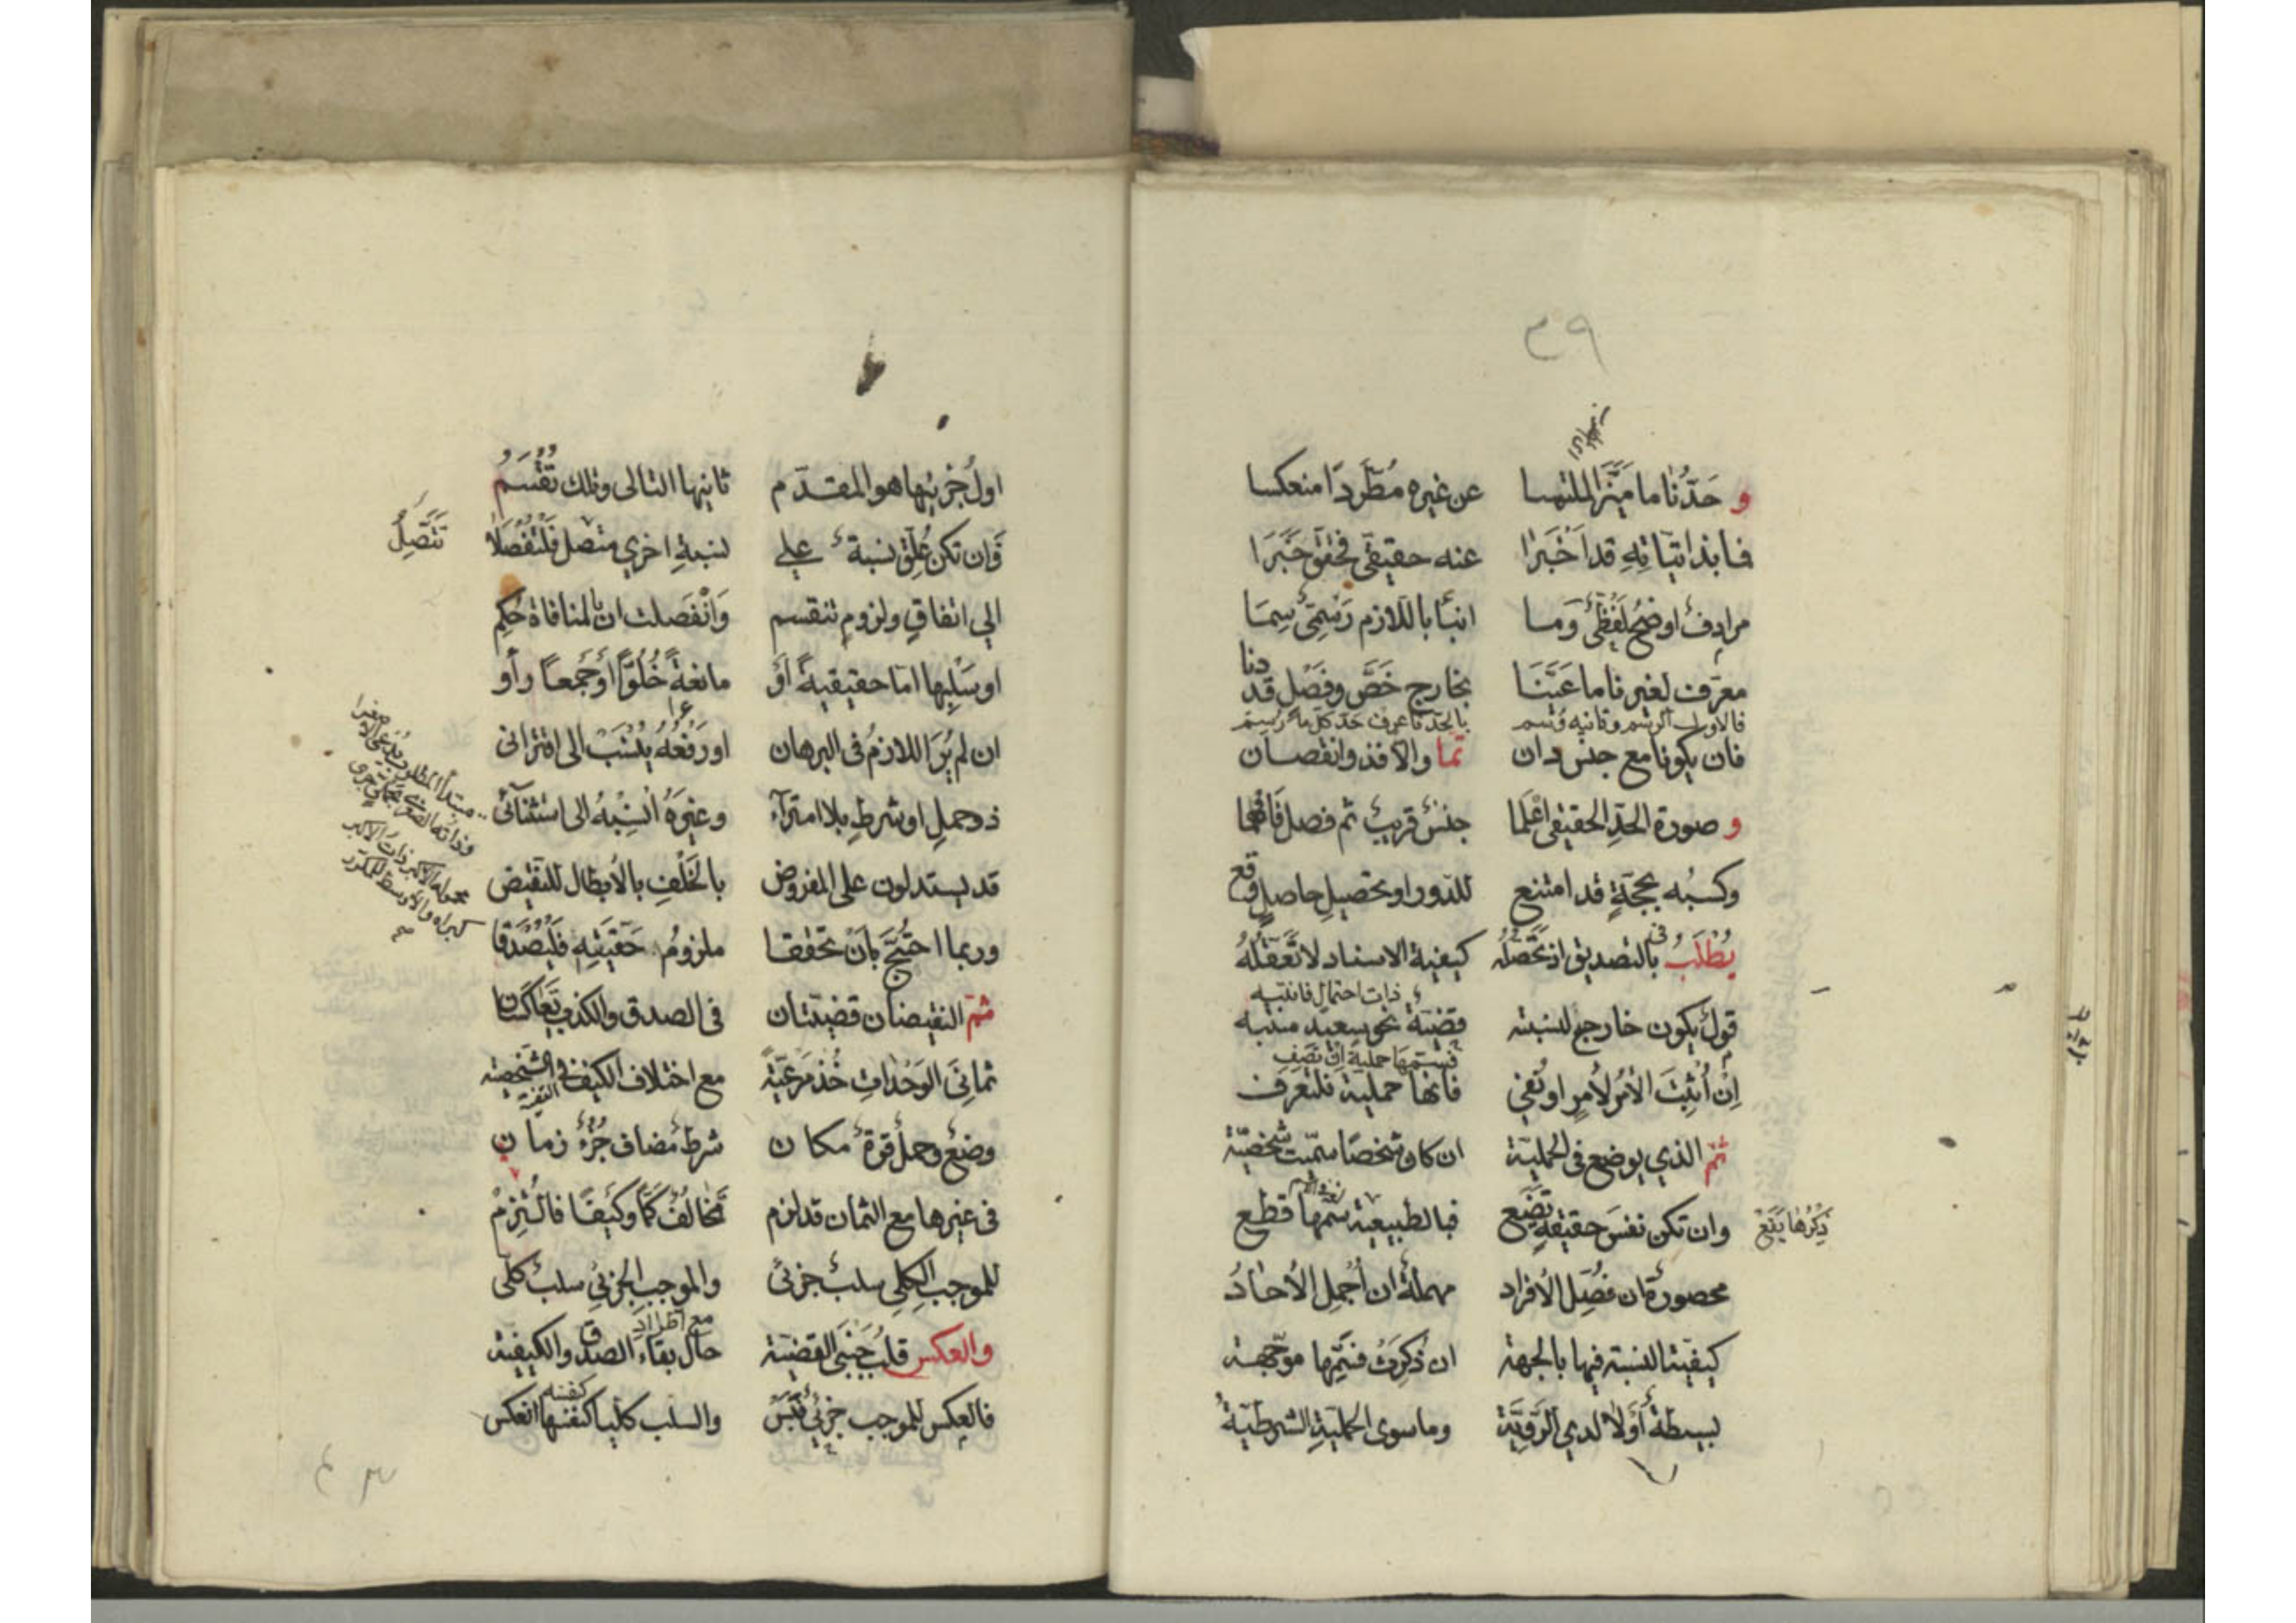 ٣٩
وحدّنا ما ميّز الملتمسا عن غيره مطّردا منعكسا
فما بذاتياته قد أخبرا عنه حقيقي فحقق خبرا
مرادف أوضح لفظي وما أنبأ باللازم رسمي سما
معرّف لغيرنا ما عيّنا بخارج خصّ وفصل قد دنا
فالاول الرسم وثانيه وسم بالحدّ
فان يكونا مع جنس دان تما والا فذو انقصان
وصورة الحدّ الحقيقي اعلما جنس قريب ثم فصل فافهما
وكسبه بحجّة قد امتنع للدور او تحصيل حاصل وقع
يطلب بالتصديق اذ تحصّله كيفية الاسناد لا تعقله
ذات احتمال فانتبه
قول يكون خارج لنسبته قضيّة نحو سعيد منتبه
فسمّها حملية ان تصف
إن أثبت الأمر لأمر او نفي فانها حملية فلتعرف
ثمّ الذي يوضع في الحملية ان كان شخصا سمّيت شخصيّة
وان تكن نفس حقيقة تضع فبالطبيعية سمّها قطع
ذكرها يقع
محصورة ان فصّل الأفراد مهملة ان أجمل الأحاد
كيفيّة النسبة فيها بالجهة ان ذكرت فسمّها موجّهة
بسيطة أولا لدى الرّوية وما سوى الحملية الشرطية
اول جزئيها هو المقدّم ثانيها التالى وتلك تقسم
وان تكن علّق نسبة على نسبة اخرى متصل فلتفصلا
تتّصل
الى اتفاق ولزوم تنقسم وانفصلت ان بالمنافاة حكم
او سلبها اما حقيقية أو مانعة خلوّا أو جمعا رأوا
ان لم ير اللازم في البرهان او رفعه ينسب الى اقتراني
ذو حمل او شرط بلا امتراء وغيره أنسبه الى استثنائي
قد يستدلون على المفروض بالخلف بالأبطال للنقيض
وربما احتجّ بأن تحققا ملزوم حقيته فليصدقا
ثمّ النقيضان قضيّتان في الصدق والكذب تعاكسان
ثماني الوحدات خذ مرعيّة مع اختلاف الكيف في الشخصية
وضع وحمل قوة مكان شرط مضاف جزء زمان
في غيرها مع الثمان قد لزم تخالف كمّا وكيفا فالتزم
للموجب الكلي سلب جزئي والموجب الجزئي سلب كلي
مع اطراد
والعكس قلب جنبي القضية حال بقاء الصدق والكيفية
فالعكس للموجب جزئي والسلب كليا كنفسها انعكس